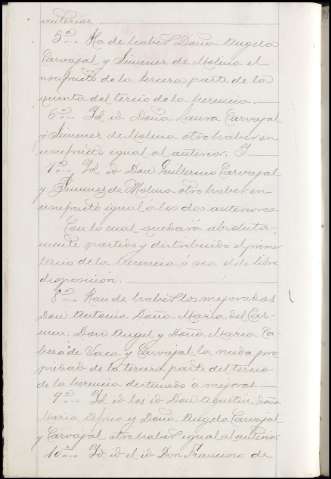 anterior.
5º. Ha de haber Doña Angela
Carvajal y Jimenez de Molina el
usufructo de la tercera parte de la
quinta del tercio de la herencia.
6º. Id. id. Doña Laura Carvajal
y Jimenez de Molina otro haber en
usufructo igual al anterior. Y
7º. Id. id. Don Guillermo Carvajal
y Jimenez de Molina otro haber en
usufructo igual a los dos anteriores
Con lo cual quedará absoluta-
mente partido y distribuido el primer
tercio de la herencia ó sea el de libre
disposición.
8º. Han de haber los mejorados
Don Antonio Doña Maria del Car-
men Don Angel y Doña Maria Ca-
beza de Vaca y Carvajal la nuda pro-
piedad de la tercera parte del tercio
de la herencia destinado a mejoras.
9º. Id. id. los id. Don Doña
Maria y Doña Angela Carvajal
y Carvajal otro haber igual al anterior
10º. Id. id. el id. Don Francisco de